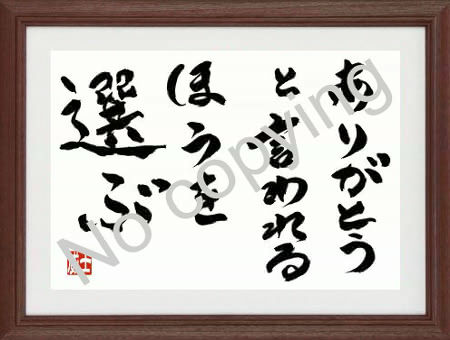 ありがとう
と言われる
ほうを
選ぶ
No copying